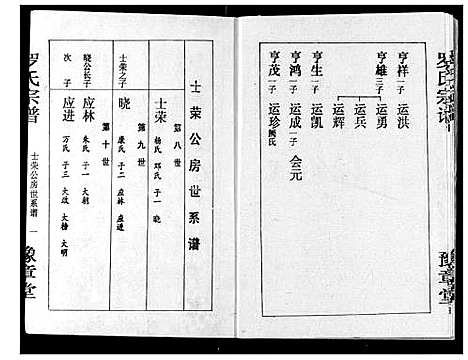 罗氏宗谱
豫章堂
亨祥 一子 运洪
亨雄 三子 运勇
运兵
运辉
亨生 一子 运凯
亨鸿 一子 运成 一子 会元
亨茂 一子 运珍 阙氏
士荣公房世系谱
第八世
士荣 杨氏 邓氏 子一 晓
第九世
士荣之子 晓 康氏 子二 应林 应进
第十世
晓公长子 应林 朱氏 子一 大朝
次子 应进 万氏 子三 大政 大楷 大明
罗氏宗谱
士荣公房世系谱 一
豫章堂